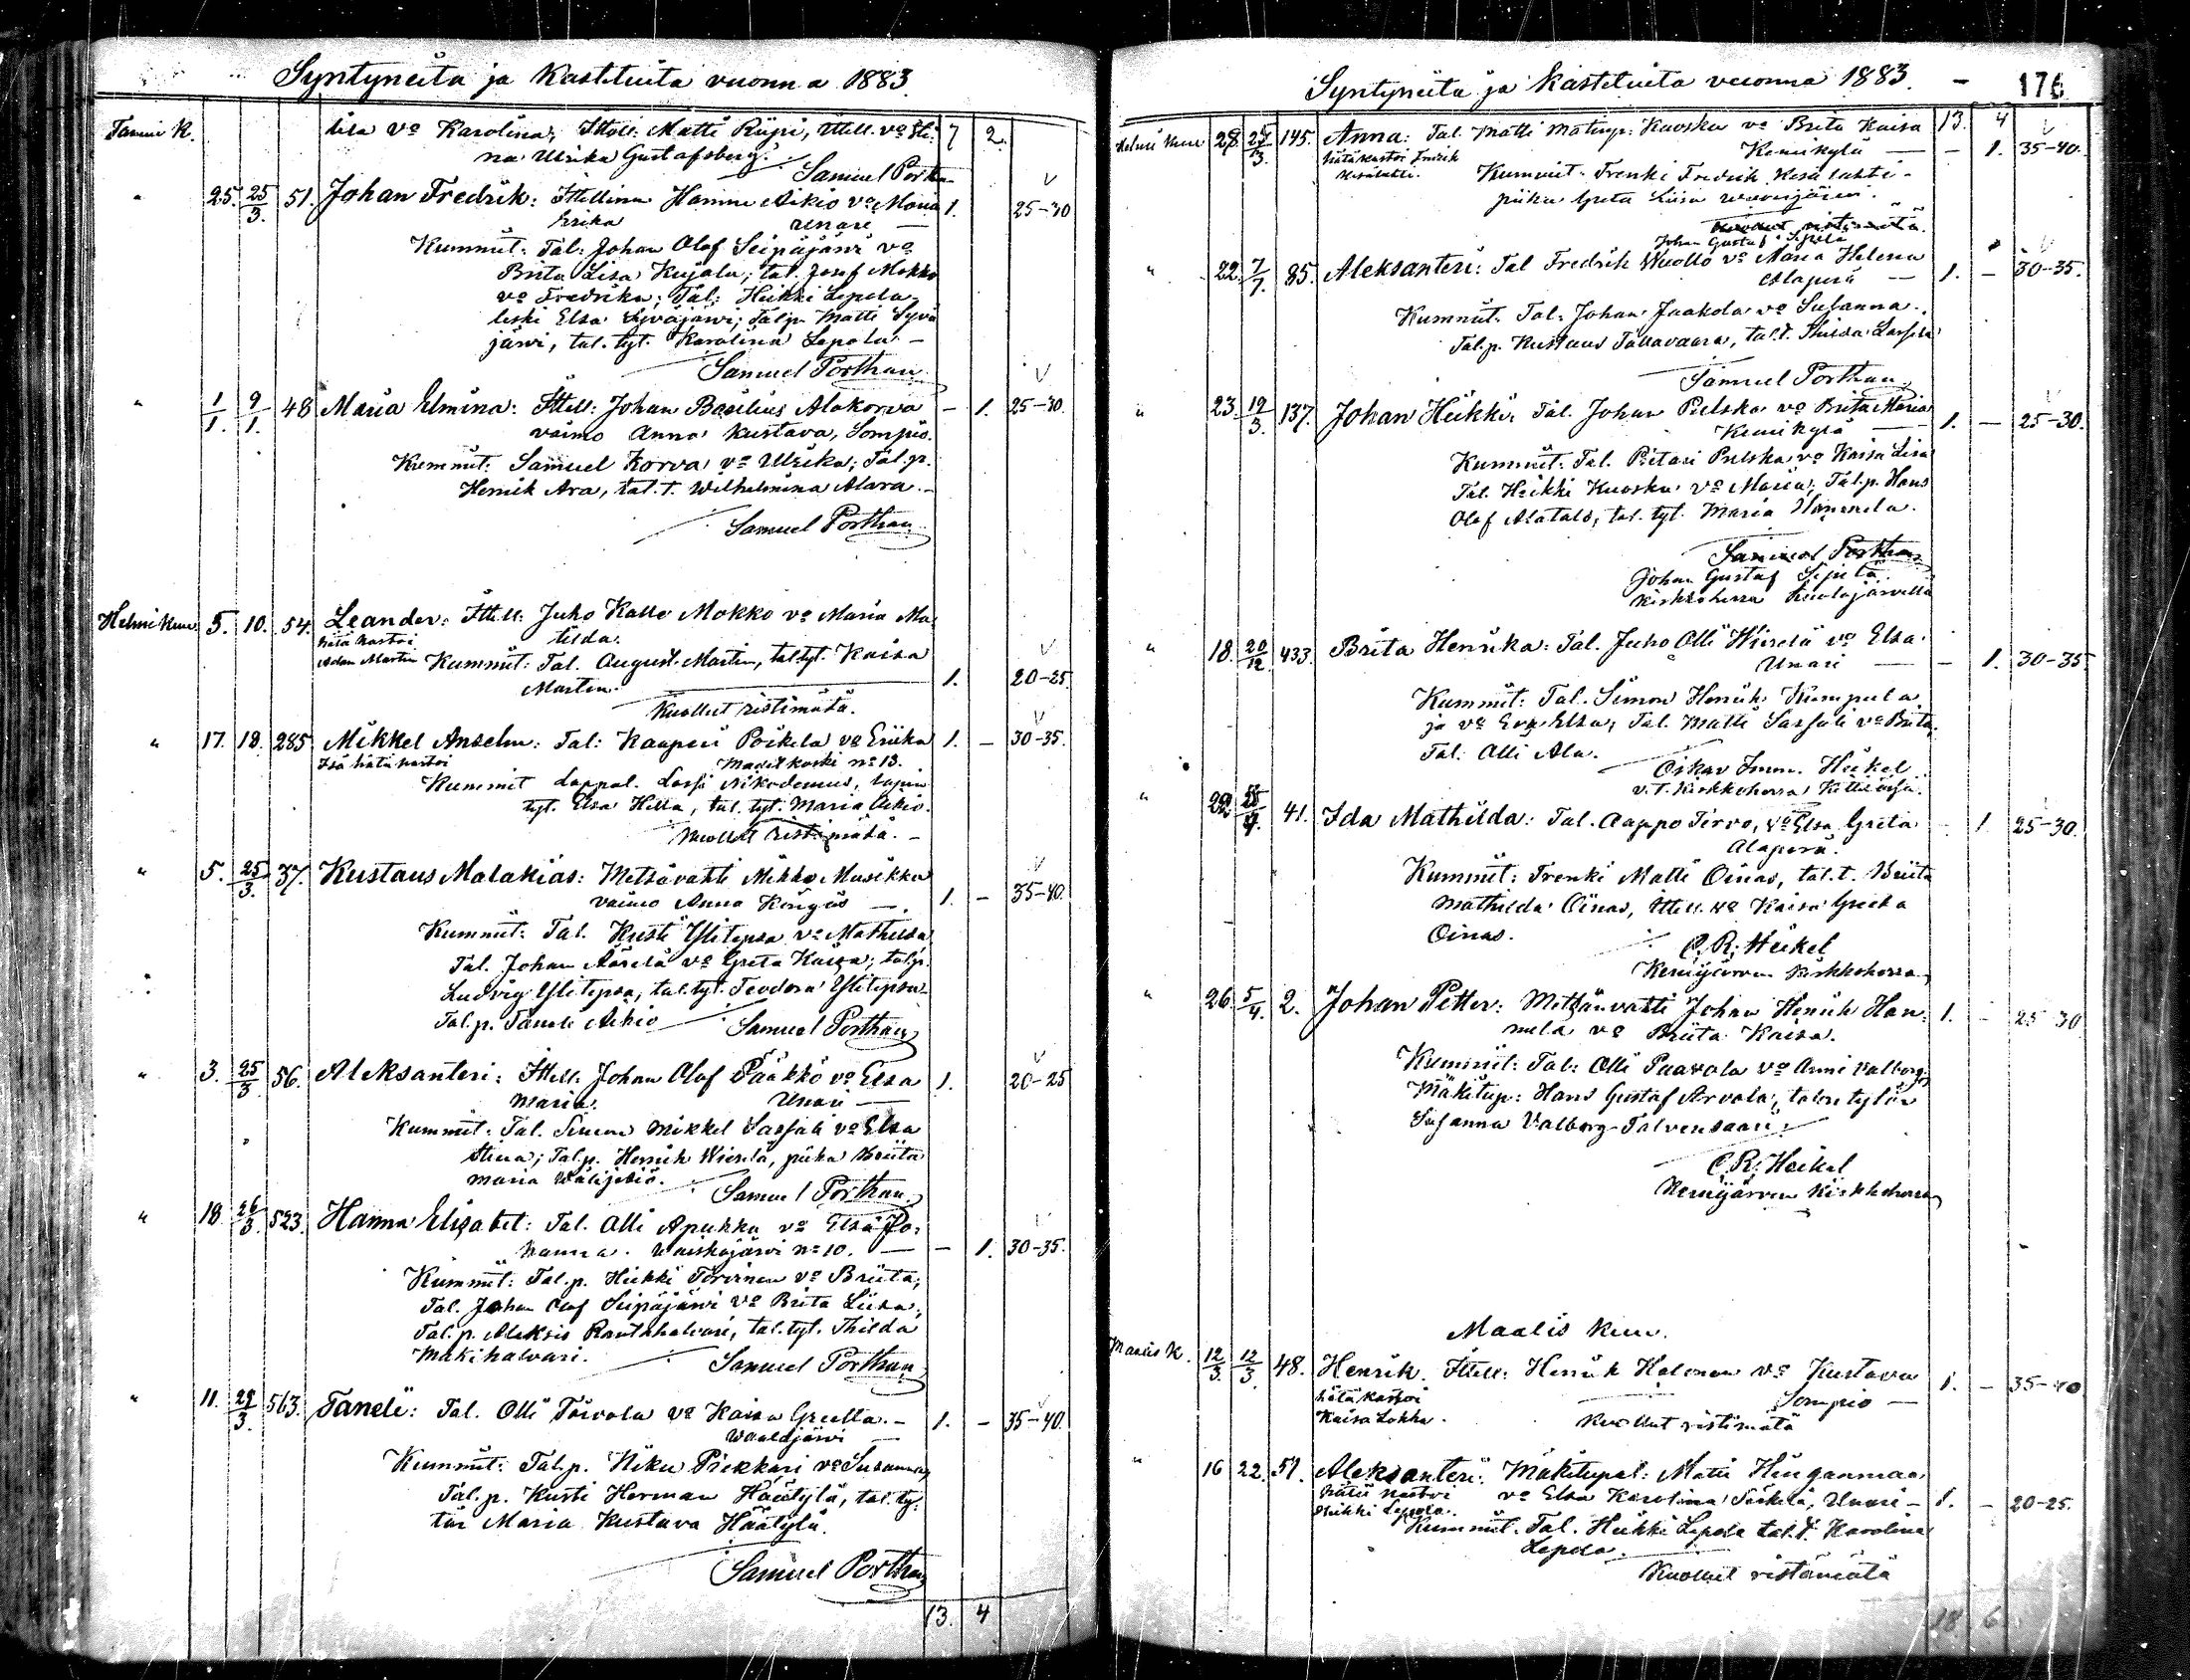 Syntyneita ja Kastetuita vuonna 1883.
Tammi K. liisa vo Karolina; Ittell. Matti Riipi, Ittell. vo Sti- 7 2.
na Ulrika Gustafsberg.
Samuel Porthan
" 25. 25/3. 51. Johan Fredrik: Ittellinen Hannu Aikio vo Maria 1. 25-30
Erika Unari —
Kummit: Tal: Johan Olof Seipäjärvi vo
Brita Lisa Kujala; tal. Josef Mokko
vo Fredrika; Tal: Heikki Lepola,
leski Elsa Syväjärvi; Tal.p. Matti Syvä
järvi, tal. tyt. Karolina Lepola —
Samuel Porthan
" 1/1. 9/1. 48 Maria Elmina: Ittell: Johan Basilius Alakorva — 1. 25-30.
vaimo Anna Kustava, Sompio.
Kummit: Samuel Korva vo Ulrika; Tal.p.
Henrik Ara, tal. t. Wilhelmina Alara.
Samuel Porthan
Helmi kuu 5. 10. 54. Leander: Ittell: Juho Kalle Mokko vo Maria Ma-
hätä kastoi tilda.
Adam Martin Kummit: Tal. August Martin, tal.tyt. Kaisa
Martin. 1. 20-25.
Kuollut ristimätä.
" 17. 18. 285 Mikkel Anselm: Tal: Kaaperi Poikela vo Eriika 1. — 30-35.
Isä hätä kastoi Madetkoski no 13.
Kummit Lappal. Lassi Nikodemus, lapin
tyt. Elsa Hetta, tal. tyt. Maria Aikio.
Kuollut ristimätä. —
" 5. 25/3. 37. Kustaus Malakias: Metsävahti Mikko Musikka
vaimo Anna Köngäs — 1. — 35-40.
Kummit: Tal. Kusti Ylitepsa vo Mathilda
Tal. Johan Aärelä vo Greta Kaisa; tal.p.
Ludvig Ylitepsa, tal.tyt. Teodora Ylitepsa
Tal.p. Taneli Aikio Samuel Porthan
" 3. 25/3 56. Aleksanteri: Ittell: Johan Olof Pääkkö vo Elsa 1. 20-25
Maria. Unari —
Kummit: Tal. Simon Mikkel Sassali vo Elsa
Stiina; Tal.p. Henrik Wierelä, piika Briita
Maria
Samuel Porthan
" 18. 26/3. 523. Hanna Elisabet: Tal. Olli Apukka vo Elsa Jo-
hanna. Waiskojärvi no 10. — — 1. 30-35.
Kummit: Tal.p. Heikki Torvinen vo Briita;
Tal. Johan Olof Seipäjärvi vo Brita Liisa;
Tal.p. Aleksis Rautahalvari, tal.tyt. Thilda
Mäkihalvari.
Samuel Porthan
" 11. 29/3. 563. Taneli: Tal. Olli Toivola vo Kaisa Greetta — 1. — 35-40.
Waalajärvi —
Kummit: Tal.p. Niku Piekkari vo Susanna
Tal.p. Kusti Herman Häätylä, tal. ty-
tär Maria Kustava Häätylä.
Samuel Porthan
13. 4
Syntyneita ja Kastetuita vuonna 1883. — 176
Helmi kuu 28. 28/3. 145. Anna: Tal. Matti Matinp: Kuoska vo Brita Kaisa 13. 4
hätäkastoi Fredrik Kemikylä — — 1. 35-40.
Kesälahti. Kummit: Frenki Fredrik Kesälahti —
piika Greta Liisa Wuojärvi.
Kuollut ristimätä.
Johan Gustaf Sipilä
" 22. 7/7. 85. Aleksanteri: Tal Fredrik Wuollo vo Maria Helena
Alaperä — 1. — 30-35.
Kummit: Tal: Johan Jaakola vo Susanna.
Tal.p. Kustaus Tallavaara, tal.t. Thilda Lassila
Samuel Porthan
" 23. 19/3. 137. Johan Heikki: Tal. Johan Pulska vo Brita Maria
Kemikylä — 1. — 25-30.
Kummit: Tal. Pietari Pulska vo Kaisa Lisa
Tal. Heikki Kuoska vo Maria; Tal.p. Hans
Olof Alatalo, tal. tyt. Maria Hannula.
Samuel Porthan
Johan Gustaf Sipilä
kirkkoherra Kuolajärvellä
" 18. 20/12. 433. Brita Henrika: Tal. Juho Olli Wierelä vo Elsa
Unari — — 1. 30-35
Kummit: Tal. Simon Henrik Kumpula
ja vo Eva Elsa; Tal. Matti Sassali vo Brita.
Tal: Olli Ala.
Oskar Imm. Heikel
v.t. kirkkoherra Kittilässä.
" 22. 25/4. 41. Ida Mathilda: Tal. Aappo Tervo, vo Elsa Greta — 1. 25-30.
Alaperä.
Kummit: Frenki Matti Oinas, tal. t. Briita
Mathilda Oinas, Ittell. vo Kaisa Greeta
Oinas.
C. R. Heikel
Kemijärven kirkkoherra
" 26. 5/4. 2. Johan Petter: Metsänvahti Johan Henrik Han- 1. — 25-30
nula vo Briita Kaisa.
Kummit: Tal: Olli Paavola vo Anni Valborg;
Mäkitup: Hans Gustaf Arvola, talon tytär
Susanna Valborg Talvensaari.
C. R. Heikel
Kemijärven kirkkoherra
Maalis kuu.
Maalis K. 12/3. 12/3. 48. Henrik. Ittell: Henrik Halonen vo Kustava 1. — 35-40
hätäkastoi Sompio —
Kaisa Lokka. Kuollut ristimätä
" 16 22. 51. Aleksanteri: Mäkitupal: Matti Hinganmaa
hätä kastoi vo Elsa Karolina Särkelä, Unari — 1. — 20-25.
Heikki Lepola.
Kummit. Tal. Heikki Lepola tal. t. Karolina
Lepola.
Kuollut ristimätä
18. 6